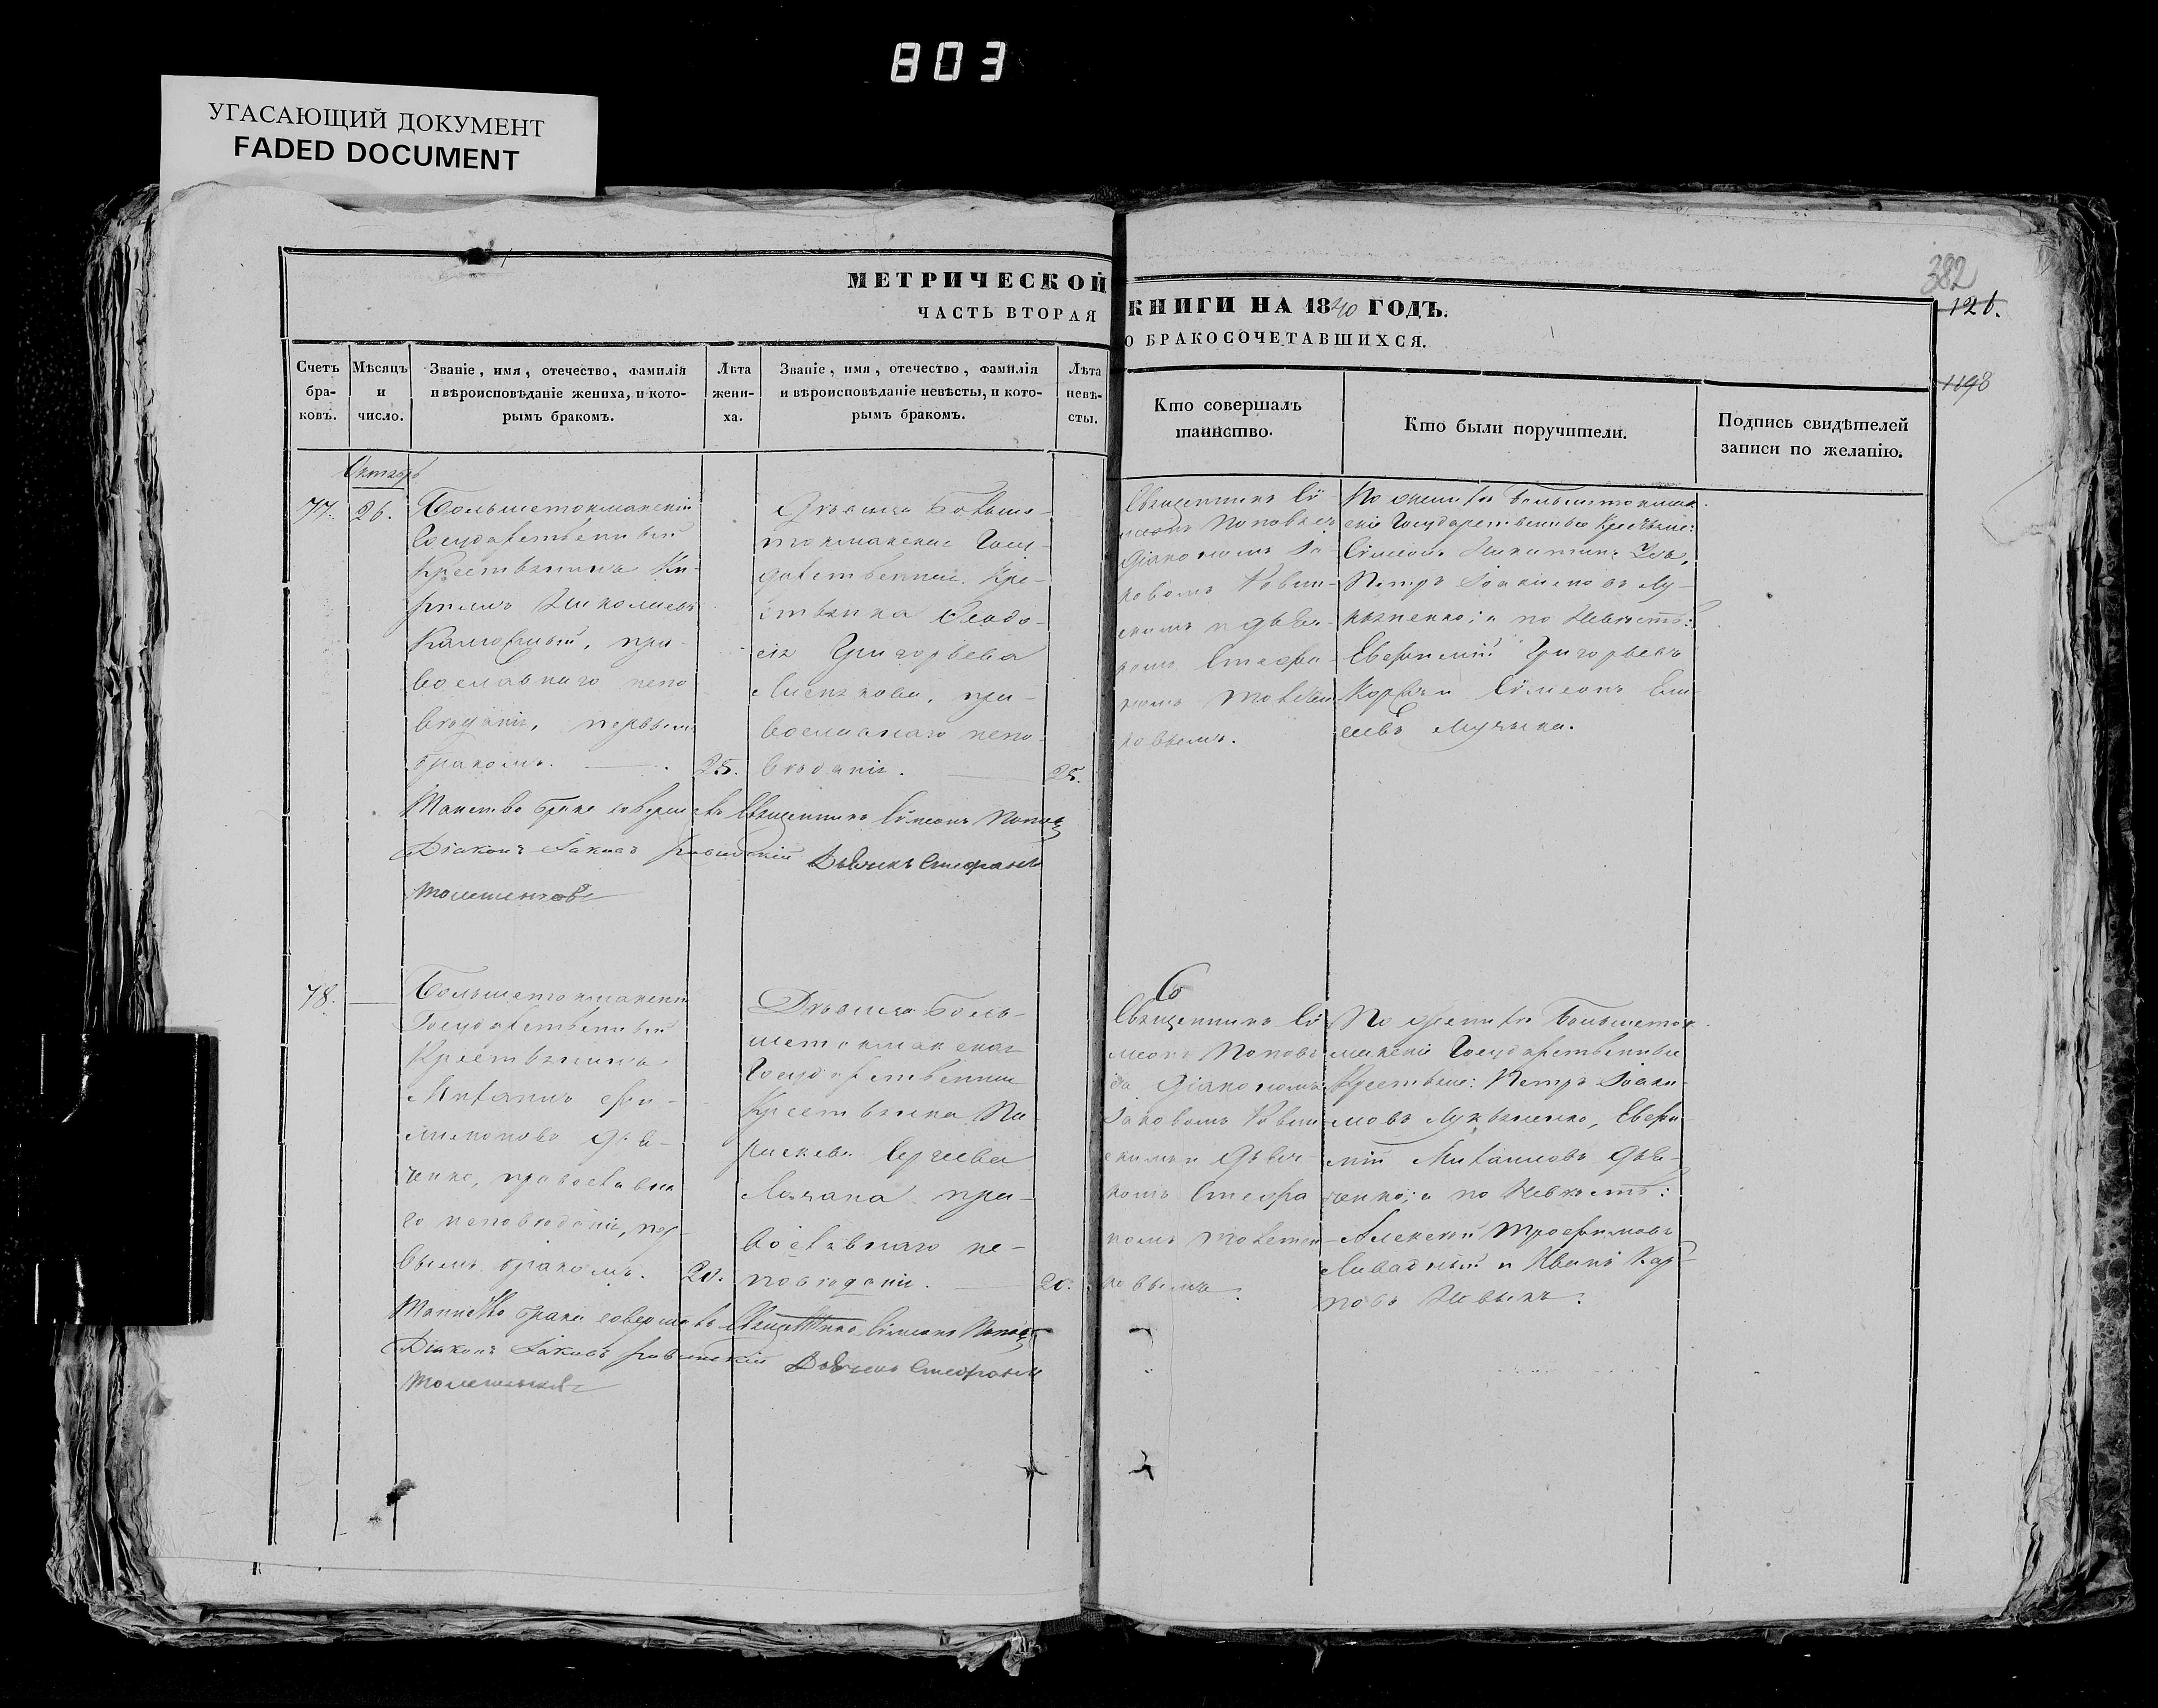 803
УГАСАЮЩИЙ ДОКУМЕНТ
FADED DOCUMENT
382
МЕТРИЧЕСКОЙ КНИГИ НА 1840 ГОДЪ.
126.
ЧАСТЬ ВТОРАЯ О БРАКОСОЧЕТАВШИХСЯ.
1193
Счетъ
бра-
ковъ.
Мѣсяцъ
и
число.
Званіе, имя, отечество, фамилія
и вѣроисповѣданіе жениха, и кото-
рымъ бракомъ.
Лѣта
жени-
ха.
Званіе, имя, отечество, фамилія
и вѣроисповѣданіе невѣсты, и кото-
рымъ бракомъ.
Лѣта
невѣ-
сты.
Кто совершалъ
таинство.
Кто были поручители.
Подпись свидѣтелей
записи по желанію.
Октябрь
77.
26.
Большетокмакскій
Государственный
Крестьянинъ Ки-
риллъ Николаевъ
пра-
вославнаго испо
вѣданія, первымъ
бракомъ.
25.
Дѣвица Больше-
токмакская Госу-
дарственная Кре-
стьянка Ѳеодо-
сія Григорьева
пра-
вославнаго испо-
вѣданія.
25.
Священникъ Сѵ-
меонъ Поповъ съ
Діакономъ Іа-
ковомъ Ровин-
скимъ и дьяч-
комъ Стефа-
номъ
ковымъ.
По женихѣ Большетокмак-
скіе Государственные Крестьяне:
Сѵмеонъ Никитинъ
Петръ Іоакимовъ Лу-
кьяненко; а по Невѣстѣ:
Евфимій Григорьевъ
и Сѵмеонъ Ели-
сѣевъ Музыка.
Таинство брака совершалъ Священникъ Сѵмеонъ Поповъ
Діаконъ Іаковъ Ровинскій Дьячекъ Стефанъ
78.
Большетокмакскій
Государственный
Крестьянинъ
Михаилъ Фи-
лимоновъ Дья-
ченко, православна
го исповѣданія, пер-
вымъ бракомъ.
20.
Дѣвица Боль-
шетокмакская
Государственная
Крестьянка Па-
раскева Сергіева
пра-
вославнаго ис-
повѣданія.
20.
Священникъ Сѵ
меонъ Поповъ
съ Діакономъ
Іаковомъ Ровин
скимъ и Дьяч-
комъ Стефа
номъ
ковымъ.
По женихѣ Большеток-
макскіе Государственные
Крестьяне: Петръ Іоаки-
мовъ Лукьяненко, Евфи-
мій Михаиловъ Дья-
ченко; а по Невѣстѣ:
Алексѣй Трофимовъ
Ливадный и Иванъ Кар-
повъ
Таинство брака совершалъ Священникъ Сѵмеонъ Поповъ
Діаконъ Іаковъ Ровинскій Дьячекъ Стефанъ